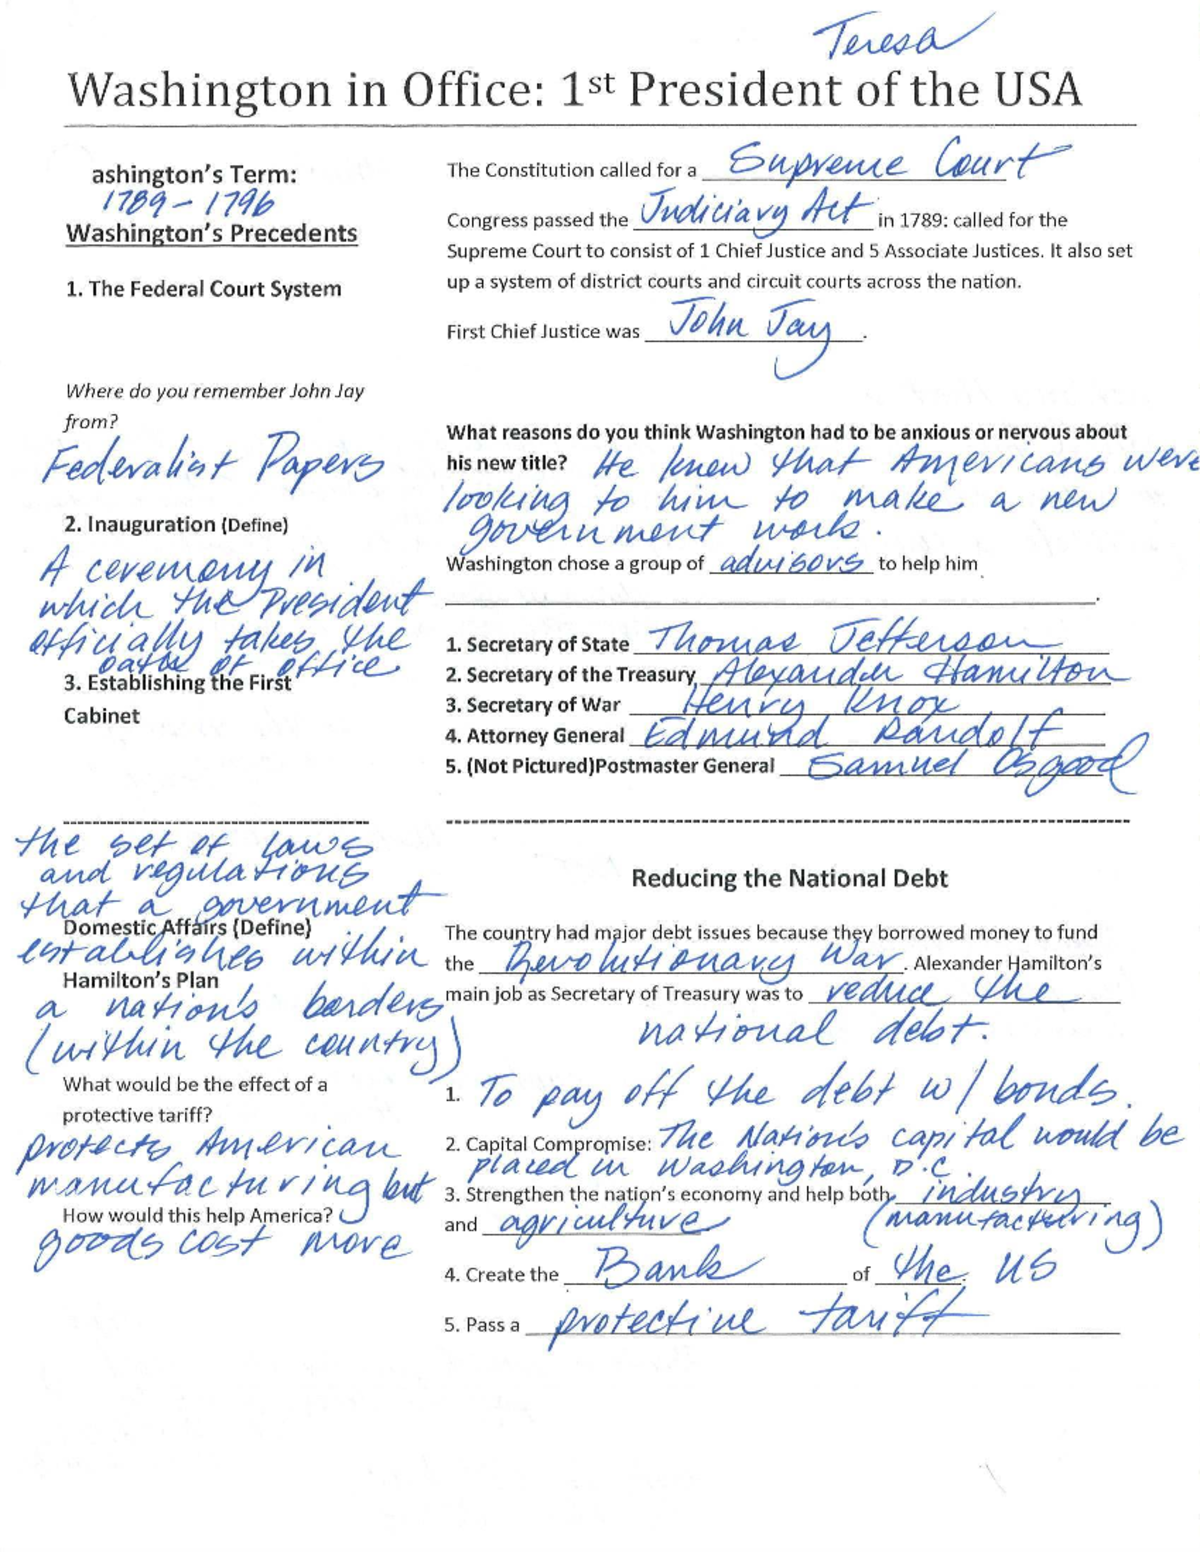 Teresa
Washington in Office: 1st President of the USA
ashington's Term:
1789 - 1796
Washington's Precedents
1. The Federal Court System
The Constitution called for a Supreme Court
Congress passed the Judiciary Act in 1789: called for the
Supreme Court to consist of 1 Chief Justice and 5 Associate Justices. It also set
up a system of district courts and circuit courts across the nation.
First Chief Justice was John Jay.
Where do you remember John Jay
from?
Federalist Papers
What reasons do you think Washington had to be anxious or nervous about
his new title? He knew that Americans were
looking to him to make a new
government work.
2. Inauguration (Define)
A ceremony in
which the President
officially takes the
oath of office
Washington chose a group of advisors to help him
.
3. Establishing the First
Cabinet
1. Secretary of State Thomas Jefferson
2. Secretary of the Treasury Alexander Hamilton
3. Secretary of War Henry Knox
4. Attorney General Edmund Randolf
5. (Not Pictured)Postmaster General Samuel Osgood
the set of laws
and regulations
that a government
Domestic Affairs (Define)
establishes within
Hamilton's Plan
a nation's borders
(within the country)
Reducing the National Debt
The country had major debt issues because they borrowed money to fund
the Revolutionary War. Alexander Hamilton's
main job as Secretary of Treasury was to reduce the
national debt.
What would be the effect of a
protective tariff?
protects American
manufacturing but
How would this help America?
goods cost more
1. To pay off the debt w/ bonds.
2. Capital Compromise: The Nation's capital would be
placed in Washington, D.C.
3. Strengthen the nation's economy and help both industry
and agriculture (manufacturing)
4. Create the Bank of the US
5. Pass a protective tariff